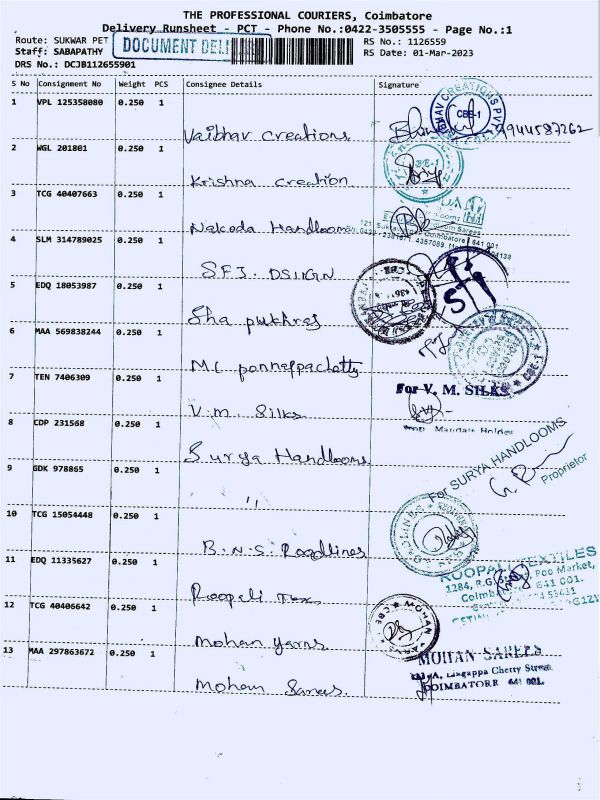 THE PROFESSIONAL COURIERS, Coimbatore
Delivery Runsheet - PCT - Phone No.:0422-3505555 - Page No.:1
Route: SUKWAR PET
DOCUMENT DELI
RS No.: 1126559
Staff: SABAPATHY
RS Date: 01-Mar-2023
DRS No.: DCJB112655901
S No Consignment No Weight PCS Consignee Details Signature
1 VPL 125358080 0.250 1 Vaibhav Creations 9944587262
CREATIONS PVT
CBE-1
2 WGL 201801 0.250 1 Krishna Creation
3 TCG 40407663 0.250 1 Nakoda Handlooms
4 SLM 314789025 0.250 1 SFJ. DSIIGN
5 EDQ 18053987 0.250 1 Sha pukhraj
6 MAA 569838244 0.250 1
CBE-1
7 TEN 7406309 0.250 1 V.M. Silks
For V. M. SILKS
8 CDP 231568 0.250 1 Surya Handlooms
For SURYA HANDLOOMS
Proprietor
9 GDK 978865 0.250 1 "
10 TCG 15054448 0.250 1 B.N.S. Roadlines
11 EDQ 11335627 0.250 1 Roopali Tex
ROOPALI TEXTILES
1284, R.G. Poo Market,
641 001.
12 TCG 40406642 0.250 1 Mohan yarns
MOHAN
13 MAA 297863672 0.250 1 Mohan Sarees
MOHAN SAREES
Lingappa Chetty Street
COIMBATORE 641 001.